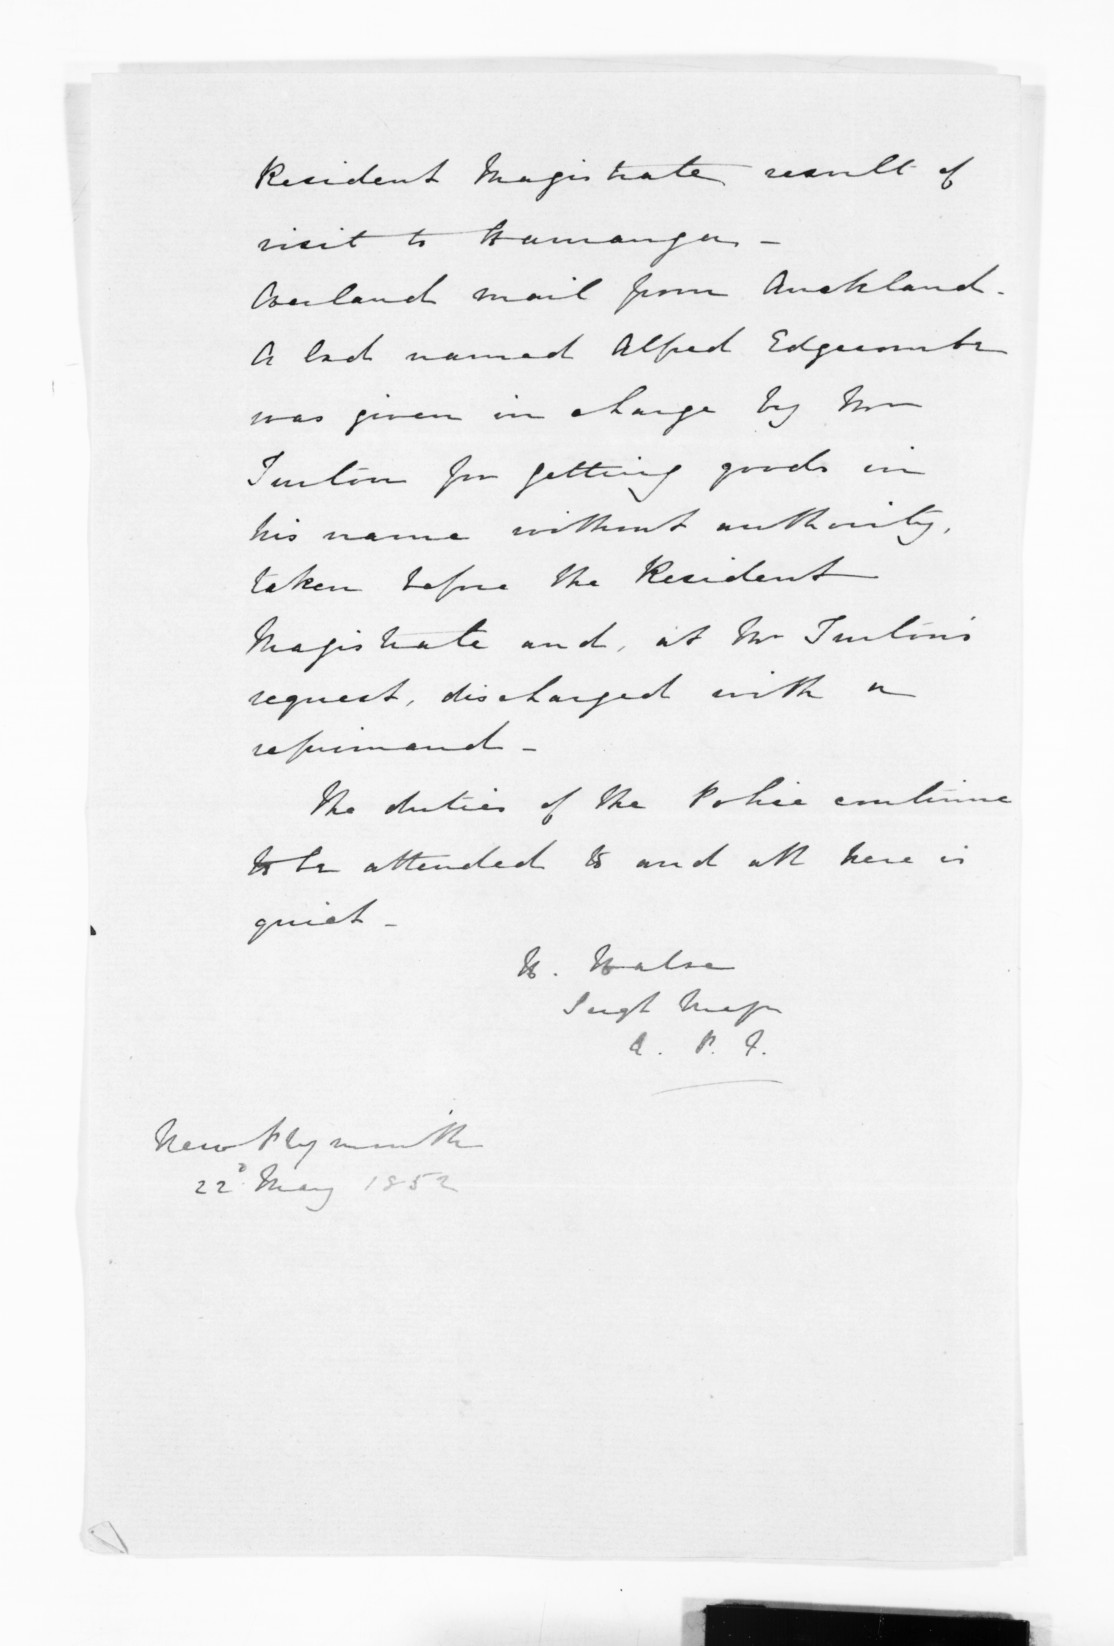 Resident Magistrate, result of
visit to Hamanga -
Overland mail from Auckland.
A lad named Alfred Edgecombe
was given in charge by Mr
Turton for getting goods in
his name without authority,
taken before the Resident
Magistrate and, at Mr Turton's
request, discharged with a
reprimand -
The duties of the Police continue
to be attended to and all here is
quiet -
H. Halse
Sergt Major
A. P. F.
New Plymouth
22d May 1852